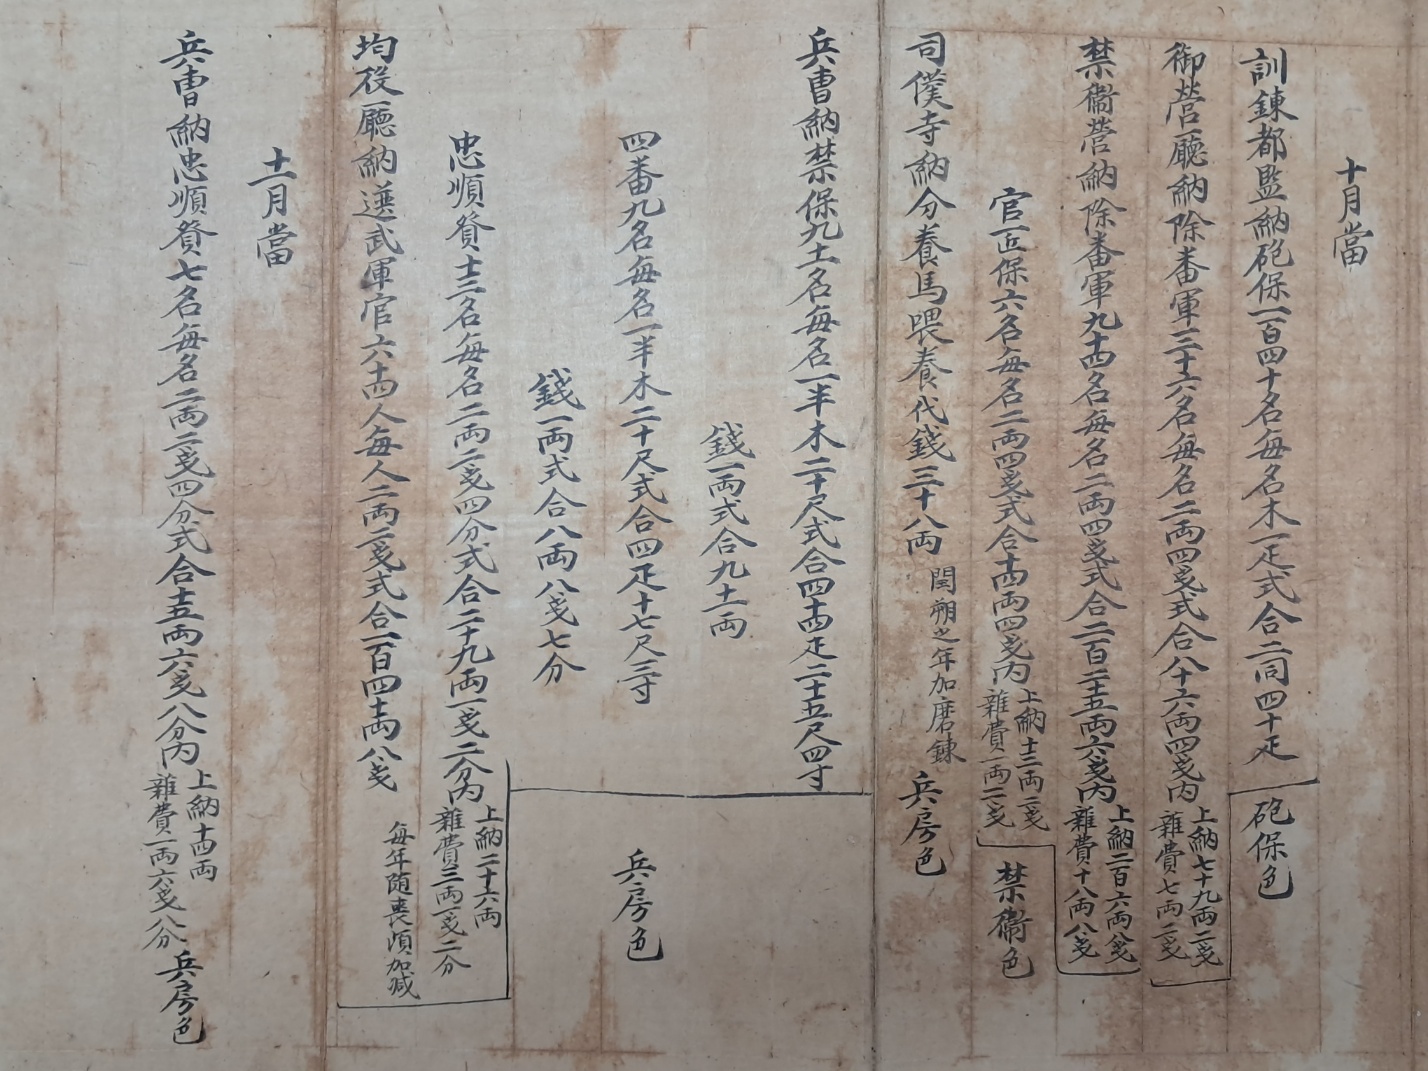 十月當
訓鍊都監納砲保一百四十名每名木一疋式合二同四十疋
砲保色
御營廳納除番軍三十六名每名二兩四戔式合八十六兩四戔內
上納七十九兩二戔
雜費七兩二戔
禁衛營納除番軍九十四名每名二兩四戔式合二百二十五兩六戔內
上納二百六兩八戔
雜費十八兩八戔
官一疋保六名每名二兩四戔式合十四兩四戔內
上納十三兩二戔
雜費一兩二戔
禁衛色
司僕寺納分養馬喂養代錢三十八兩
閏朔之年加磨鍊
兵房色
兵曹納禁保九十一名每名一半木二十尺式合四十四疋二十五尺四寸
錢一兩式合九十一兩
四番九名每名一半木二十尺式合四疋十七尺三寸
錢一兩式合八兩八戔七分
兵房色
忠順貧十三名每名二兩二戔四分式合二十九兩一戔二分內
上納二十六兩
雜費三兩一戔二分
均役廳納選武軍官六十四人每人二兩二戔式合一百四十兩八戔
每年隨喪頉加減
十一月當
兵曹納忠順貧七名每名二兩二戔四分式合十五兩六戔八分內
上納十四兩
雜費一兩六戔八分
兵房色